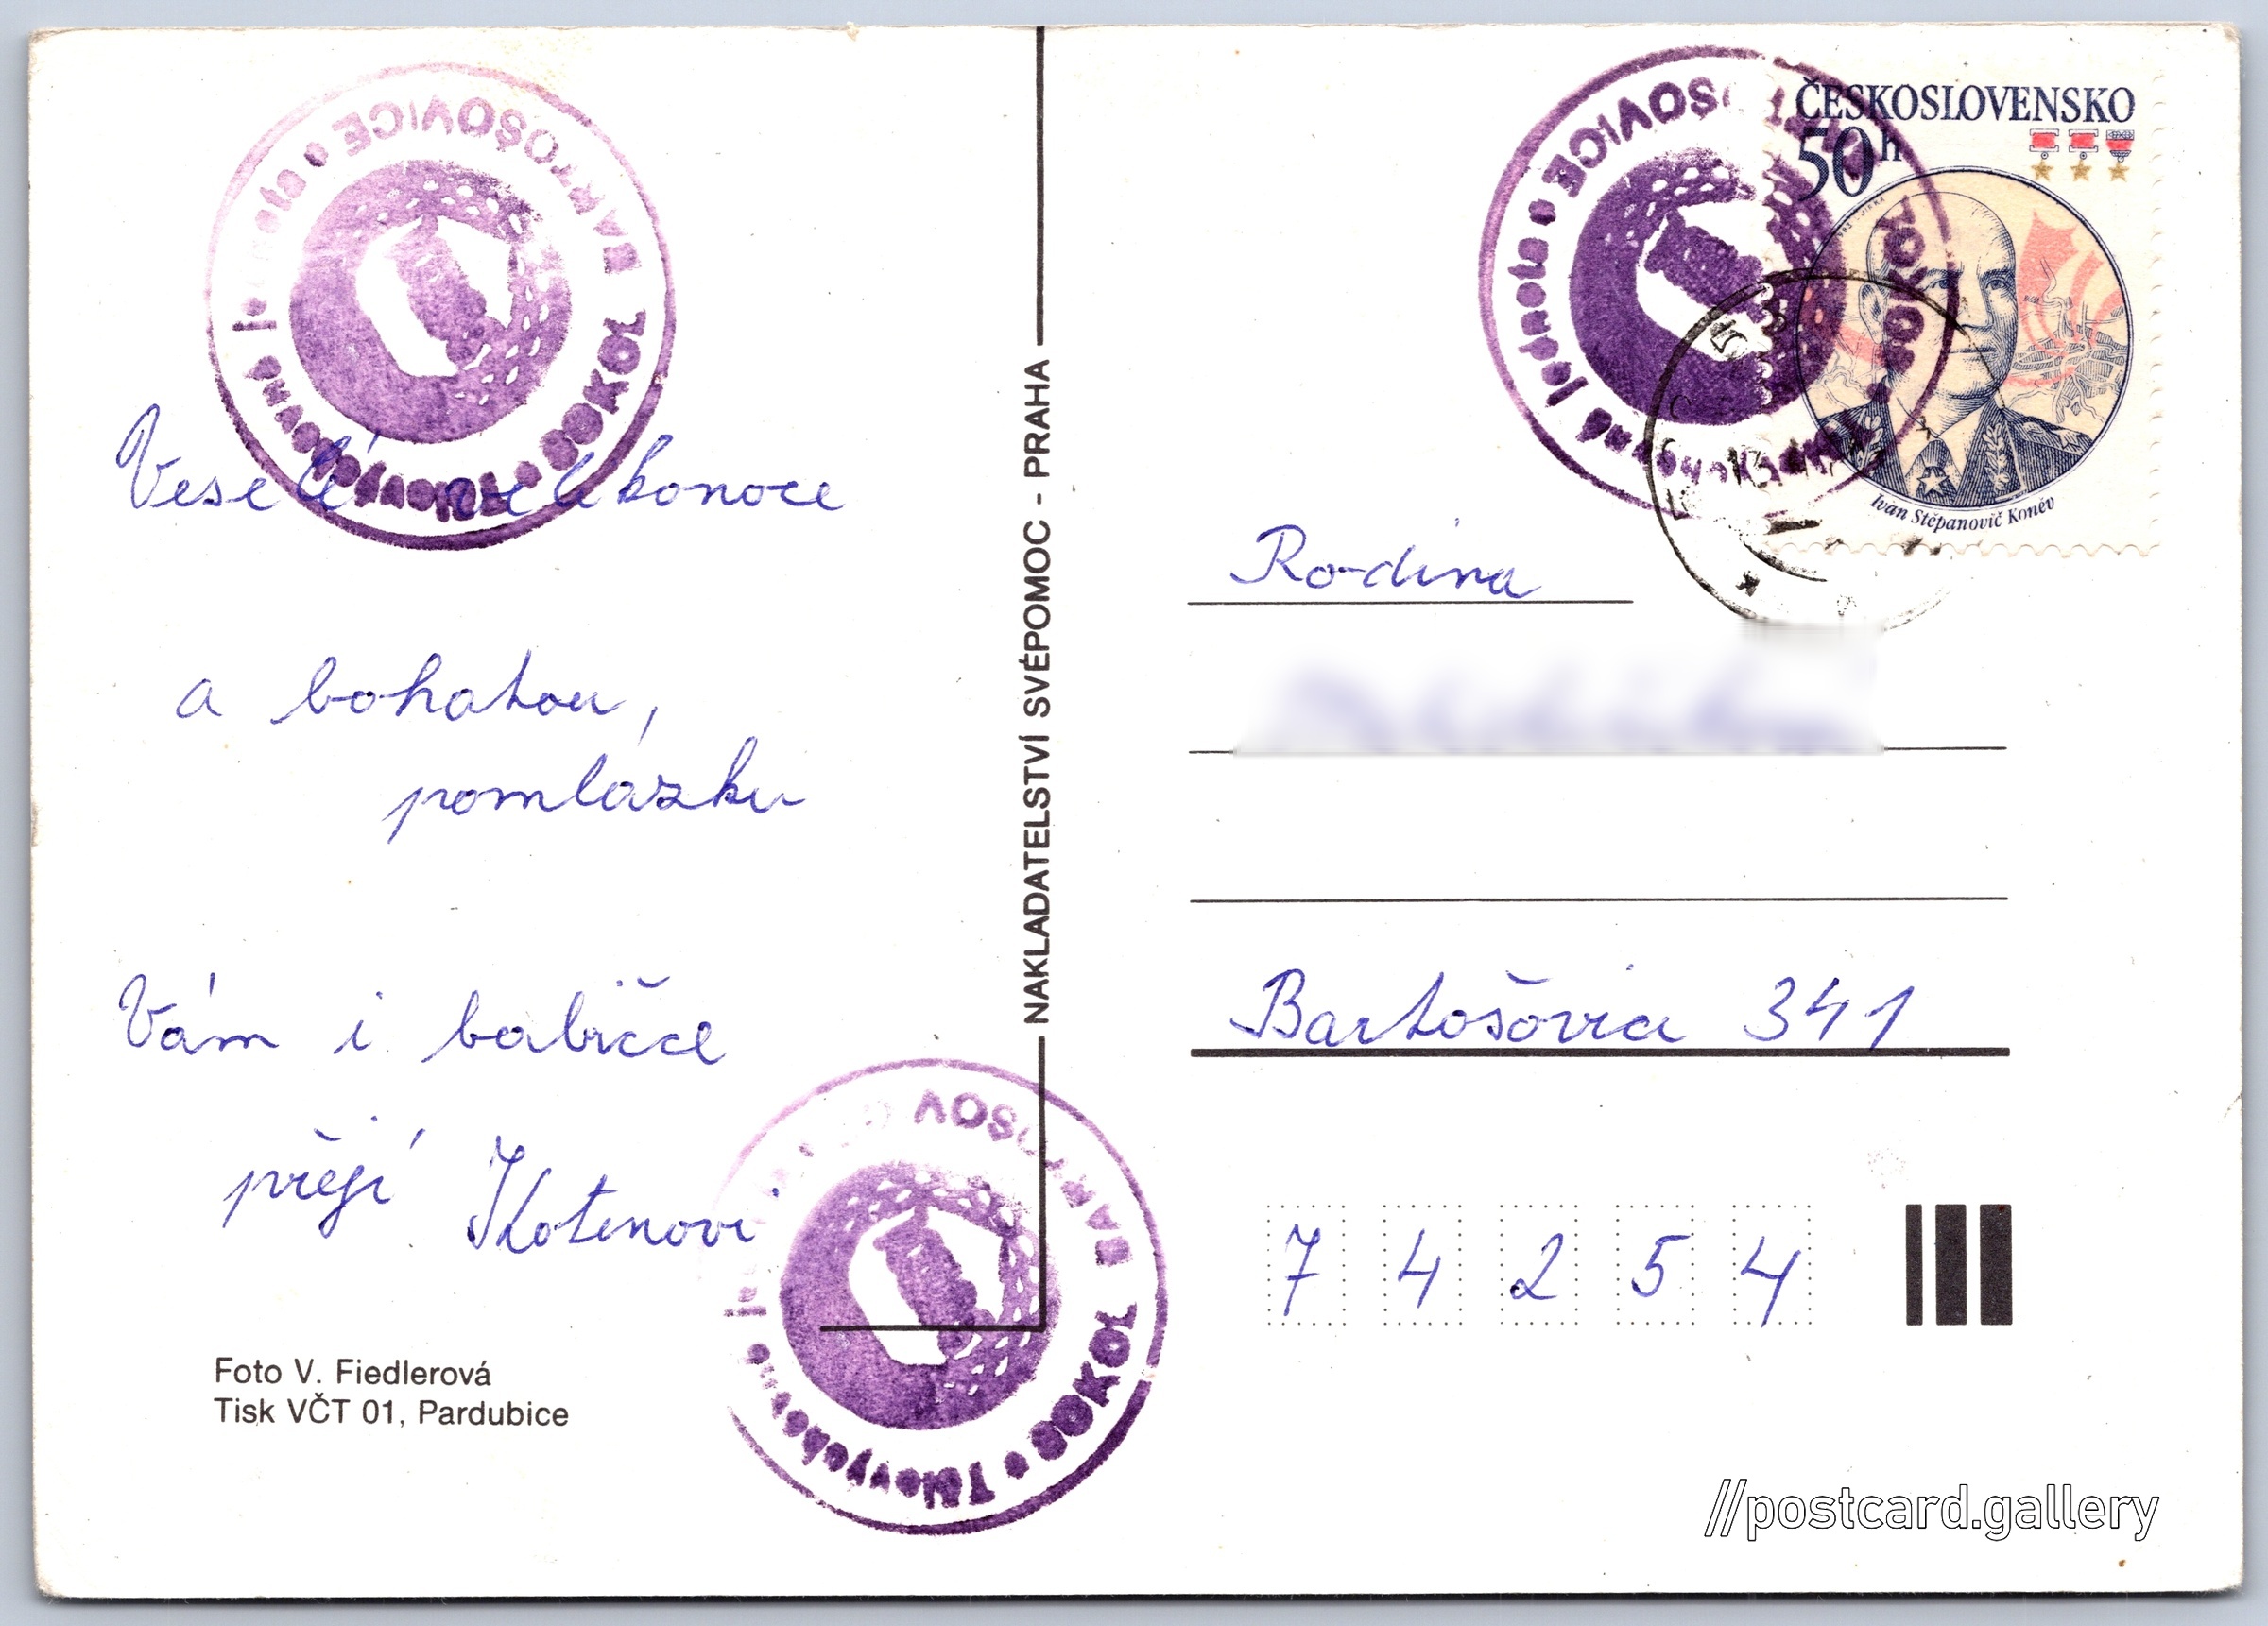 Veselé velikonoce
a bohatou,
pomlázku
Vám i babičce
přejí Kotenovi
Foto V. Fiedlerová
Tisk VČT 01, Pardubice
NAKLADATELSTVÍ SVÉPOMOC - PRAHA
ČESKOSLOVENSKO
50 h
Ivan Stěpanovič Koněv
Rodina
Bartošovice 341
74254
Tělovýchovná jednota • BARTOŠOVICE • SOKOL
Tělovýchovná jednota • BARTOŠOVICE • SOKOL
Tělovýchovná jednota • BARTOŠOVICE • SOKOL
//postcard.gallery